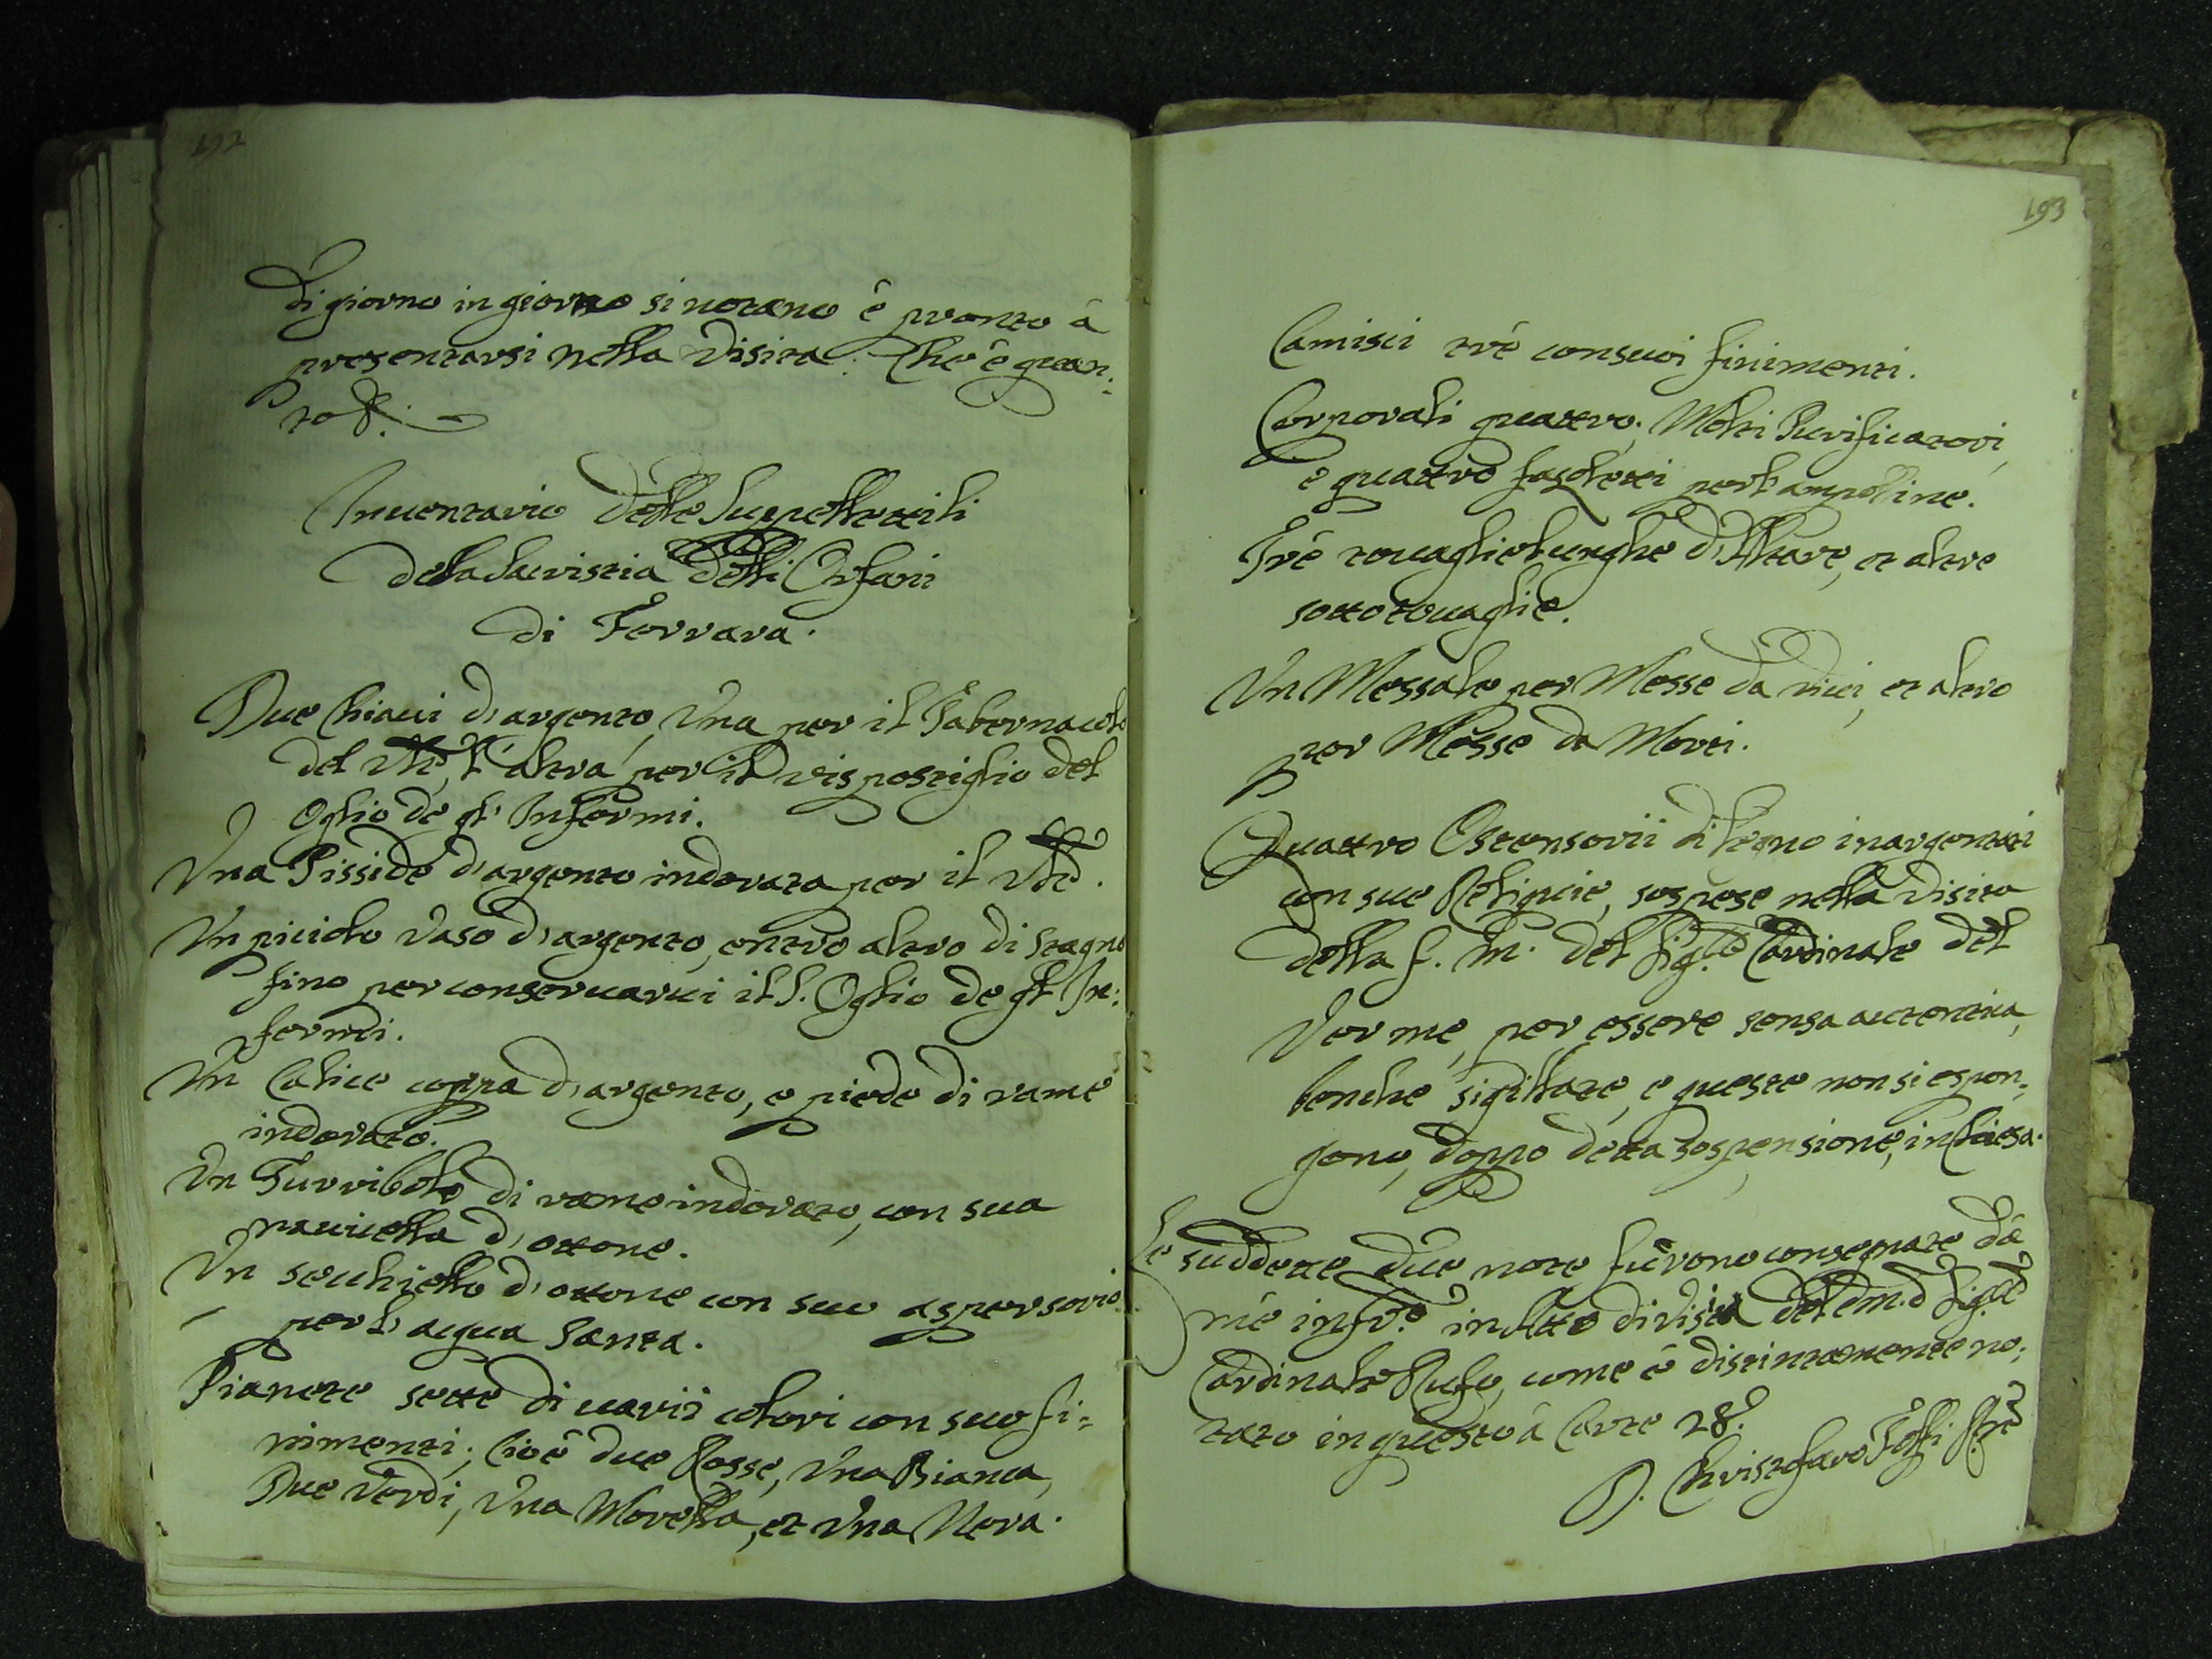 192
di giorno in giorno si notano è pronto à
presentarsi nella Visita. Che è quan:
to &.
Inuentario delle Suppelletili
della Sacristia delli Orfani
di Ferrara.
Due Chiaui d'argento, Una per il Tabernacolo
del Ven.e, l'altra per il ripostiglio del
Oglio de gl' Infermi.
Una Pisside d'argento indorata per il Ven.e.
Un piciolo Vaso d'argento, entro altro di stagno
fino per conseruarui il S. Oglio de gl' In:
fermi.
Un Calice coppa d'argento, e piede di rame
indorato.
Un Turribolo di rame indorato, con sua
nauicella d'ottone.
Un sechiello d'ottone con suo aspersorio
per l'acqua Santa.
Pianete sette di uarii colori con suo fi=
nimenti; Cioè due Rosse, Una Bianca,
Due Verdi, Una Morella, et Una Nera.
193
Camisci trè con suoi finimenti.
Corporali quattro; Molti Purificatori,
e quattro fasoletti per l'ampoline.
Trè touaglie lunghe d'Altare, et altre
sottotouaglie.
Un Messale per Messe da Vici, et altro
per Messe da Morti.
Quattro Ostensorii di legno inargentati
con sue Reliquie, sospese nella Visita
della f. m. del Sig.re Cardinale del
Verme, per essere senza autentica,
benche sigillate, e queste non si espon:
gono, doppo detta sospensione, in Chiesa.
Le suddette due note furono consegnate dà
mè infr.o in Atto di visita del Em.o Sig.re
Cardinale Rufo, come è distintamente no:
tato in questo à Carte 28.
D. Christofaro